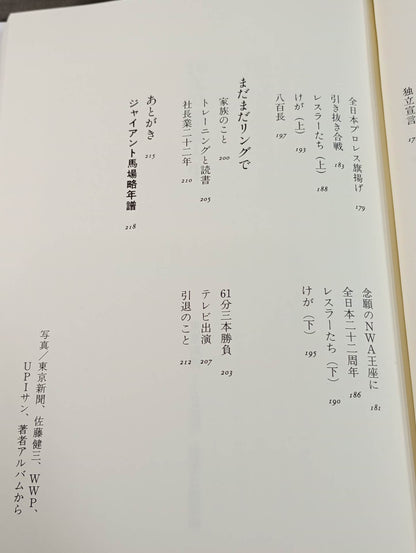 独立宣言 17
全日本プロレス旗揚げ 179
念願のNWA王座に 181
引き抜き合戦 183
全日本二十二周年 186
レスラーたち（上） 188
レスラーたち（下） 190
けが（上） 193
けが（下） 195
八百長 197
まだまだリングで
家族のこと 200
61分三本勝負 203
トレーニングと読書 205
テレビ出演 207
社長業二十二年 210
引退のこと 212
あとがき 215
ジャイアント馬場略年譜 218
写真／東京新聞、佐藤健三、WWP、
UPIサン、著者アルバムから